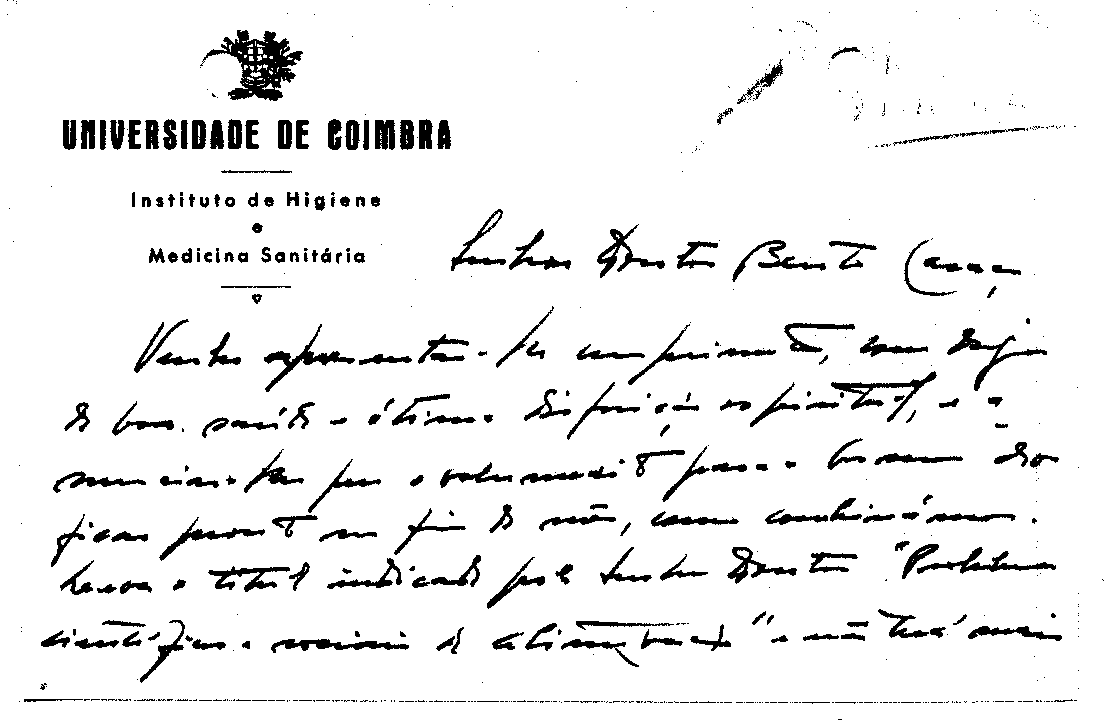 UNIVERSIDADE DE COIMBRA
Instituto de Higiene
e
Medicina Sanitária
Senhor Doutor Bento Caraça
Venho apresentar-lhe cumprimentos, com desejo
de boa saúde e ótima disposição espiritual, e a
nunciar-lhe que o volumezito para a
ficar pronto no fim do mês, como combinámos.
Leva o título indicado pelo Senhor Doutor "Problemas
científicos e sociais da alimentação" e não terá mais